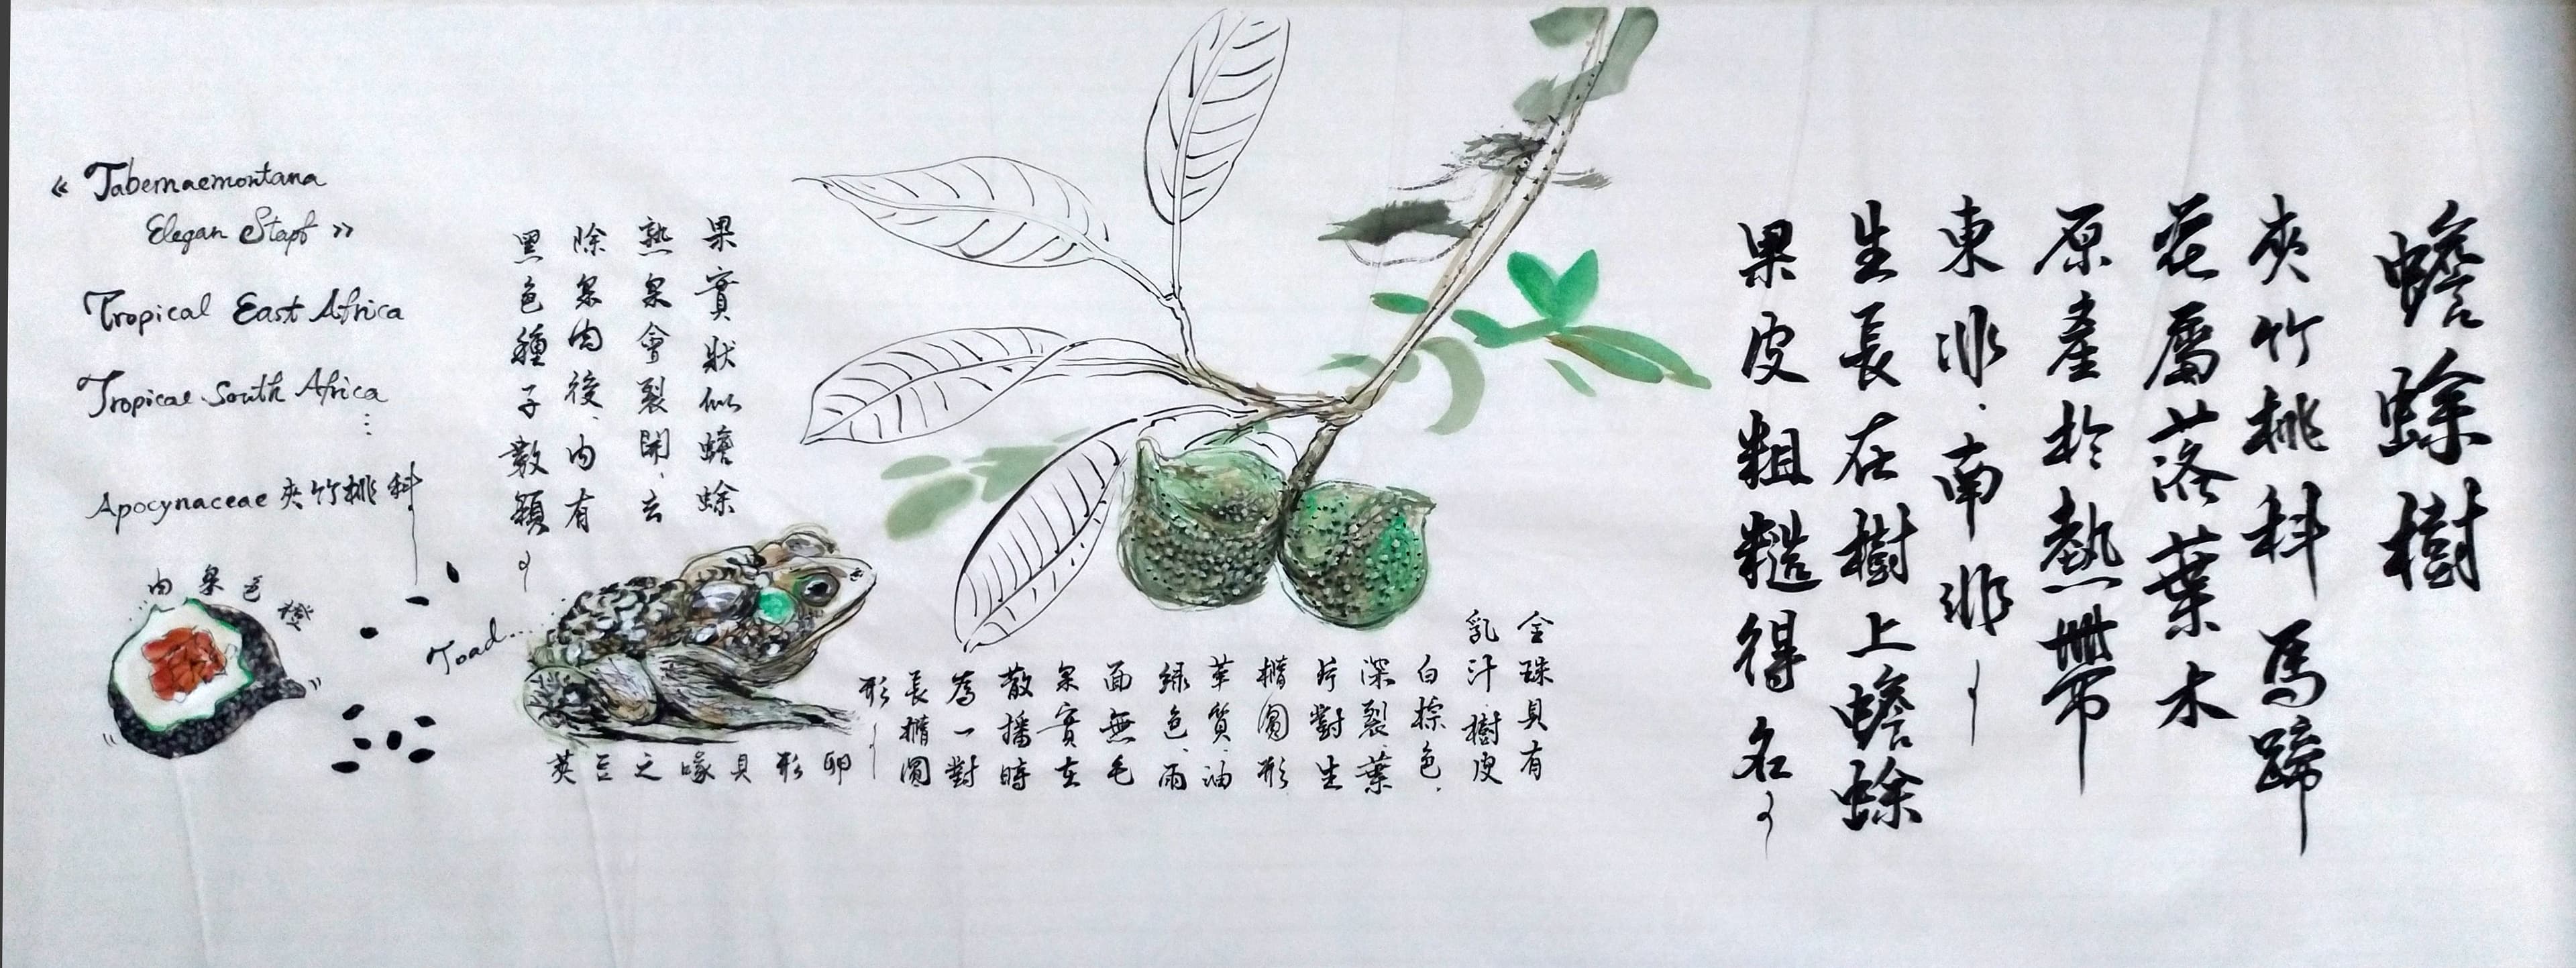 蟾蜍樹
夾竹桃科馬蹄
花屬落葉木
原產於熱帶
東非.南非
生長在樹上蟾蜍
果皮粗糙得名
全珠具有
乳汁.樹皮
白棕色.
深裂.葉
片對生
橢圓形
革質.油
綠色.兩
面無毛
果實在
散播時
為一對
長橢圓
形
卵形具喙之豆莢
果實狀似蟾蜍
熟果會裂開.去
除果肉後.內有
黑色種子數顆
Toad...
《Tabernaemontana
Elegan Stapf》
Tropical East Africa
Tropical South Africa
...
Apocynaceae 夾竹桃科
橙色果肉